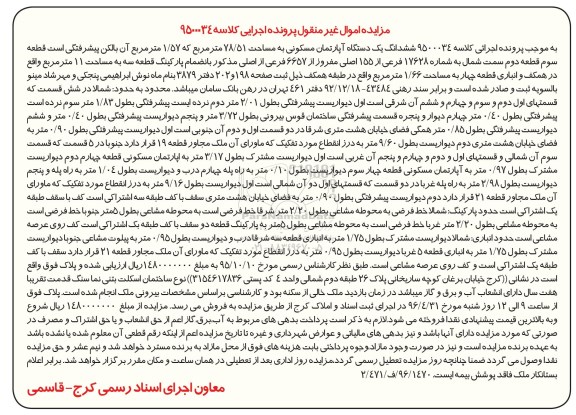 مزایده اموال غیر منقول پرونده اجرایی کلاسه ۹۵۰۰۰۳۴
به موجب پرونده اجرائی کلاسه ۹۵۰۰۰۳۴ ششدانگ یک دستگاه آپارتمان مسکونی به مساحت ۷۸/۵۱ مترمربع که ۱/۵۷ مترمربع آن بالکن پیشرفتگی است قطعه
سوم قطعه دوم سمت شمال به شماره ۱۷۶۲۸ فرعی از ۱۵۵ اصلی مفروز از ۶۶۵۷ فرعی از اصلی مذکور بانضمام پارکینگ قطعه سه به مساحت ۱۱ مترمربع واقع
در همکف و انباری قطعه چهار به مساحت ۱/۶۶ مترمربع واقع در طبقه همکف ذیل ثبت صفحه ۱۹۸ و ۲۰۲ دفتر ۳۸۷۹ بنام ماه نوش ابراهیمی پنجکی و مهرشاد مینو
بالسویه ثبت و صادر شده است و برابر سند رهنی ۴۳۴۸۴- ۹۲/۱۲/۱۸ دفتر ۴۶۱ تهران در رهن بانک سامان میباشد. محدود به حدود: شمالا در شش قسمت که
قسمتهای اول دوم و سوم و چهارم و ششم آن شرقی است اول دیواریست پیشرفتگی بطول ۲/۰۱ متر دوم نرده ایست پیشرفتگی بطول ۱/۸۳ متر سوم نرده است
پیشرفتگی بطول ۰/۴۰ متر چهارم دیوار و پنجره قسمت پیشرفتگی ساختمان قوس بیرونی بطول ۳/۷۲ متر و پنجم دیواریست پیشرفتگی بطول ۰/۴۰ متر و ششم
دیواریست پیشرفتگی بطول ۰/۸۵ متر همگی فضای خیابان هشت متری شرقا در دو قسمت اول و دوم آن جنوبی است اول دیواریست پیشرفتگی بطول ۰/۹۰ متر به
فضای خیابان هشت متری دوم دیواریست بطول ۹/۶۰ متر به درز انقطاع مورد تفکیک که ماورای آن ملک مجاور قطعه ۱۹ قرار دارد جنوبا در ۵ قسمت که قسمت
سوم آن شمالی و قسمتهای اول و دوم و چهارم و پنجم آن غربی است اول دیواریست مشترک بطول ۳/۱۷ متر به آپارتمان مسکونی قطعه چهارم دوم دیواریست
مشترک بطول ۰/۹۷ متر به آپارتمان مسکونی قطعه چهار سوم دیواریست بطول ۰/۱۰ متر به راه پله چهارم درب و دیواریست بطول ۱/۰۴ متر به راه پله و پنجم
دیواریست بطول ۲/۹۸ متر به راه پله غربا در دو قسمت که قسمتهای اول دو آن شمالی است اول دیواریست بطول ۹/۱۶ متر به درز انقطاع مورد تفکیک که ماورای
آن ملک مجاور قطعه ۲۱ قرار دارد دوم دیواریست پیشرفتگی بطول ۰/۹۰ متر به فضای خیابان هشت متری سقف با کف طبقه سه اشتراکی است کف با سقف طبقه
یک اشتراکی است حدود پارکینگ: شمالا خط فرضی به محوطه مشاعی بطول ۲/۲۰ متر شرقا خط فرضی است به محوطه مشاعی بطول ۵متر جنوبا خط فرضی است
به محوطه مشاعی بطول ۲/۲۰ متر غربا خط فرضی است به محوطه مشاعی بطول ۵متر به پارکینگ قطعه دو سقف با کف طبقه یک اشتراکی است کف روی عرصه
مشاعی است حدود انباری: شمالا دیواریست مشترک بطول ۱/۷۵ متر به انباری قطعه سه شرقا درب و دیواریست بطول ۰/۹۵ متر به پیلوت مشاعی جنوبا دیواریست
مشترک بطول ۱/۷۵ متر به انباری قطعه ۵ غربا دیواریست بطول ۰/۹۵ متر به درز انقطاع مورد تفکیک که ماورای آن ملک مجاور قطعه ۲۱ قرار دارد سقف با کف
طبقه یک اشتراکی است و کف روی عرصه مشاعی است. طبق نظر کارشناس رسمی مورخ ۹۵/۱۰/۱۰ به مبلغ ۱۴۸۰۰۰۰۰۰۰ ریال ارزیابی شده و پلاک فوق واقع
است در نشانی ((کرج خیابان برغان کوچه ساریخانی پلاک ۲۶ طبقه دوم شمالی واحد ۴ کد پستی ۳۱۵۴۶۱۷۸۳۶)) نوع ساختمان اسکلت بتنی نما سنگ قدمت تقریبا
هفت سال دارای انشعاب آب و برق و گاز میباشد در زمان بازدید ملک خالی از سکنه بود و کارشناسی براساس مشخصات بیرونی ملک انجام شده است. پلاک فوق
از ساعت ۹ الی ۱۲ روز شنبه مورخ ۹۶/۴/۳۱ در اجرای ثبت اسناد و املاک کرج از طریق مزایده به فروش می رسد. مزایده از مبلغ ۱۴۸۰۰۰۰۰۰۰ ریال شروع
و به بالاترین قیمت پیشنهادی نقدا فروخته می شود: لازم به ذکر است پرداخت بدهی های مربوط به آب.برق.گاز اعم از حق انشعاب و یا حق اشتراک و مصرف در
صورتی که مورد مزایده دارای آنها باشد و نیز بدهی های مالیاتی و عوارض شهرداری و غیره تا تاریخ مزایده اعم از اینکه رقم قطعی آن معلوم شده یا نشده باشد
به عهده برنده مزایده است و نیز در صورت وجود مازاد وجوه پرداختی بابت هزینه های فوق از محل مازاد به برنده مسترد خواهد شد و نیم عشر و حق مزایده
نقدا وصول می گردد ضمنا چنانچه روز مزایده تعطیل رسمی گردد.مزایده روز اداری بعد از تعطیلی در همان ساعت و مکان مقرر برگزار خواهد شد. برابر اعلام
بستانکار ملک فاقد پوشش بیمه ایست. ۹۶/۱۴۷۰/ف/۲/۴۷۱
معاون اجرای اسناد رسمی کرج - قاسمی